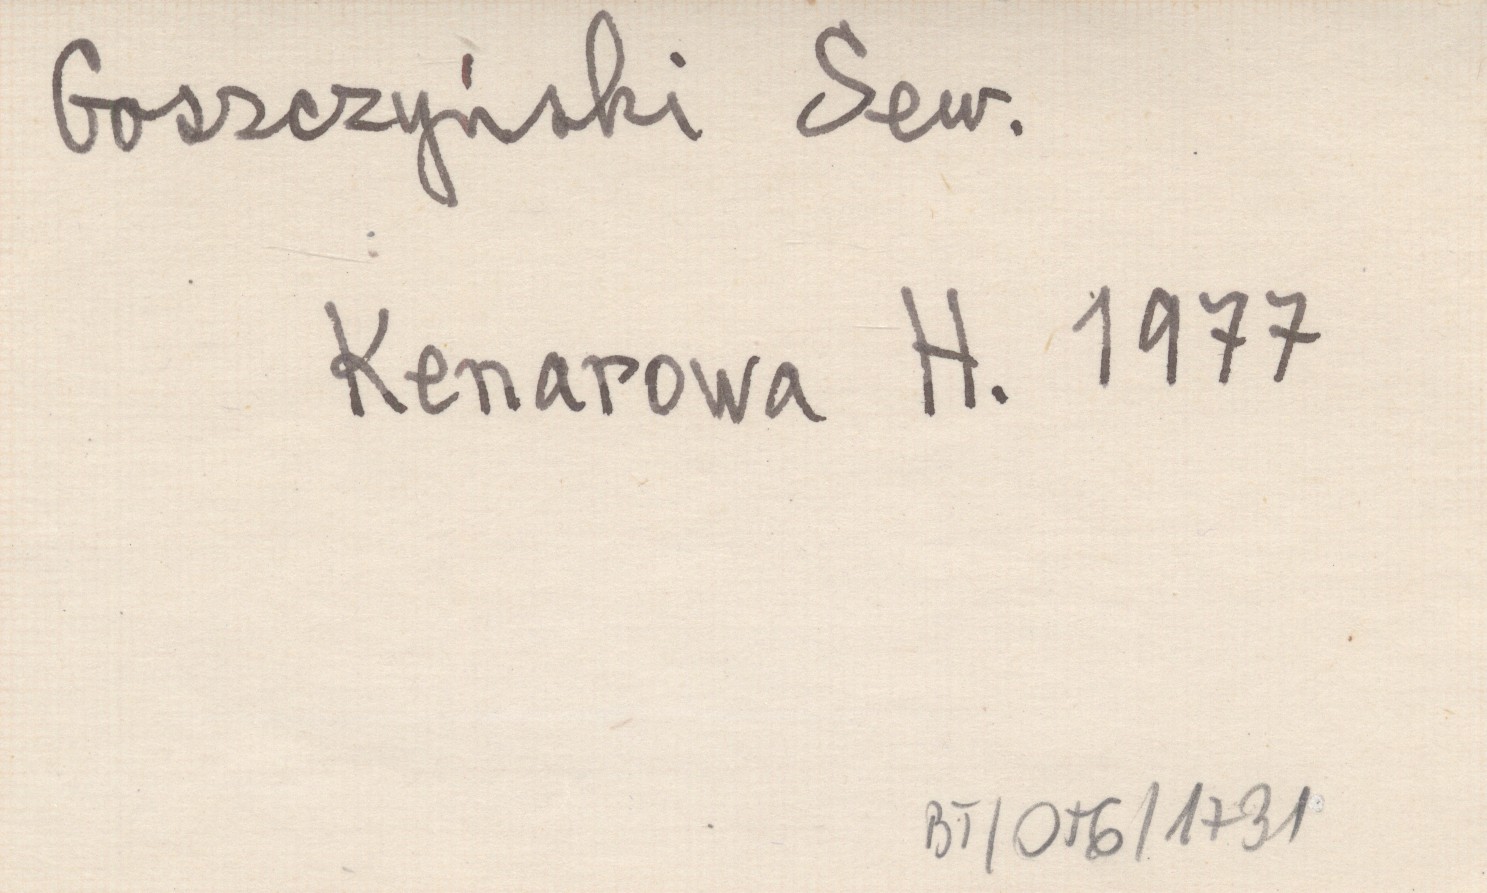 Goszczyński Sew.
Kenarowa H. 1977
BT/OTG/1731